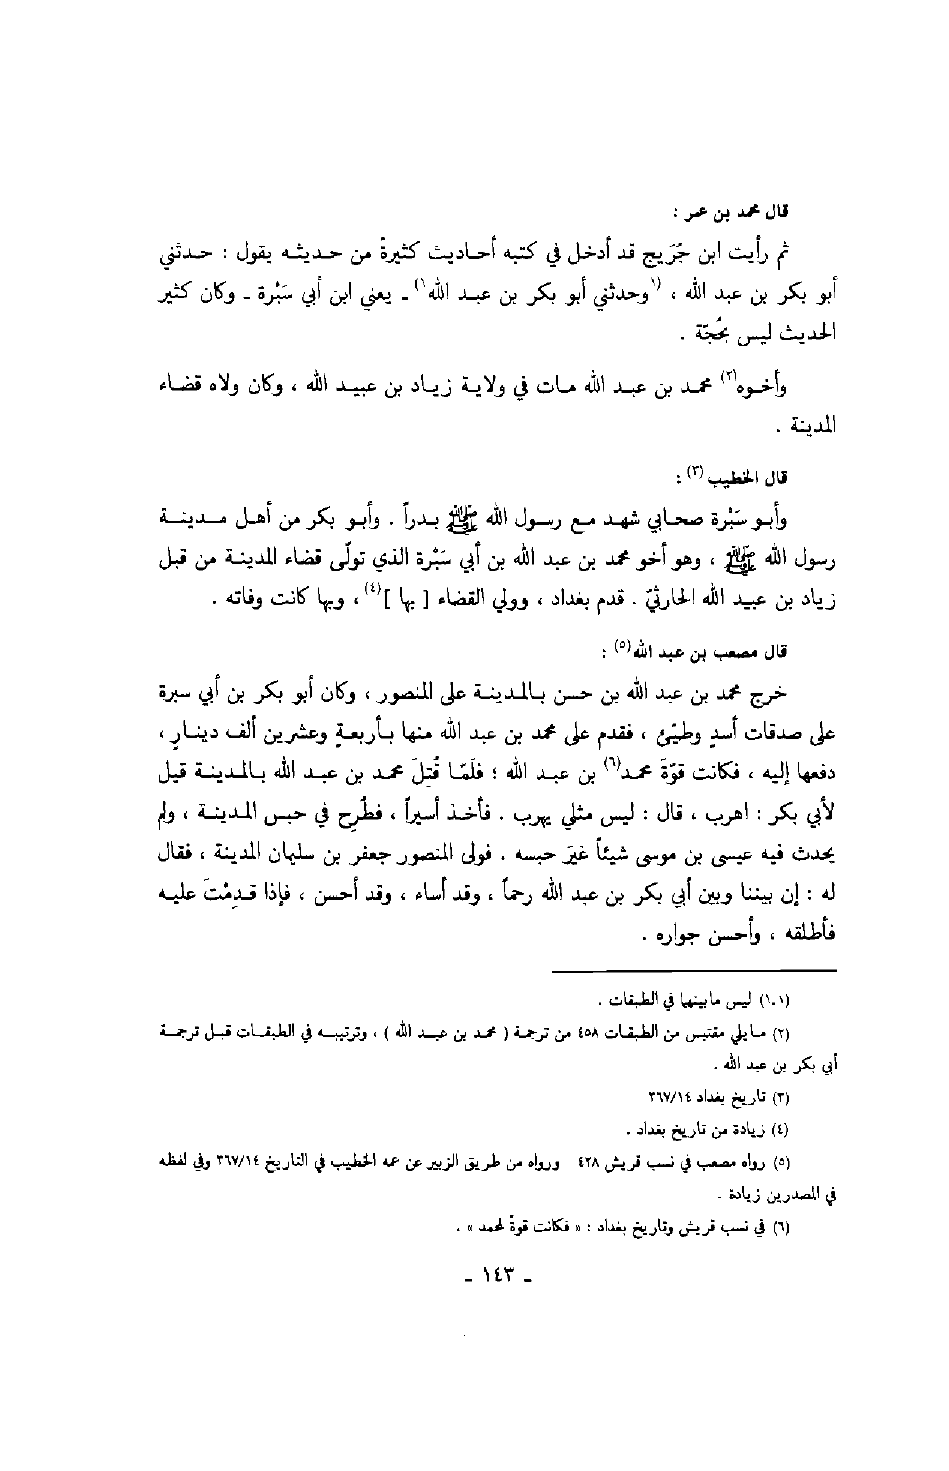 قال محمد بن عمر :
ثم رأيت ابن جُرَيج قد أدخل في كتبه أحاديث كثيرةً من حديثه يقول : حدثني
أبو بكر بن عبد الله ، (١وحدثني أبو بكر بن عبد الله١) ـ يعني ابن أبي سَبْرة ـ وكان كثير
الحديث ليس بحُجّة .
وأخوه(٢) محمد بن عبد الله مات في ولاية زياد بن عبيد الله ، وكان ولاه قضاء
المدينة .
قال الخطيب(٣) :
وأبو سَبْرة صحابي شهد مع رسول الله ﷺ بدراً . وأبو بكر من أهل مدينة
رسول الله ﷺ ، وهو أخو محمد بن عبد الله بن أبي سَبْرة الذي تولّى قضاء المدينة من قبل
زياد بن عبيد الله الحارثيّ . قدم بغداد ، وولي القضاء [ بها ](٤) ، وبها كانت وفاته .
قال مصعب بن عبد الله(٥) :
خرج محمد بن عبد الله بن حسن بالمدينة على المنصور ، وكان أبو بكر بن أبي سبرة
على صدقات أسدٍ وطيّئ ، فقدم على محمد بن عبد الله منها بأربعةٍ وعشرين ألف دينارٍ ،
دفعها إليه ، فكانت قوّة محمد(٦) بن عبد الله ؛ فلمّا قُتِلَ محمد بن عبد الله بالمدينة قيل
لأبي بكر : اهرب ، قال : ليس مثلي يهرب . فأخذ أسيراً ، فطُرح في حبس المدينة ، ولم
يحدث فيه عيسى بن موسى شيئاً غيَر حبسه . فولى المنصور جعفر بن سليمان المدينة ، فقال
له : إن بيننا وبين أبي بكر بن عبد الله رحماً ، وقد أساء ، وقد أحسن ، فإذا قدِمْتَ عليه
فأطلقه ، وأحسن جواره .
(١ـ١) ليس مابينها في الطبقات .
(٢) مايلي مقتبس من الطبقات ٤٥٨ من ترجمة ( محمد بن عبد الله ) ، وترتيبه في الطبقات قبل ترجمة
أبي بكر بن عبد الله .
(٣) تاريخ بغداد ٣٦٧/١٤
(٤) زيادة من تاريخ بغداد .
(٥) رواه مصعب في نسب قريش ٤٢٨ ورواه من طريق الزبير عن عمه الخطيب في التاريخ ٣٦٧/١٤ وفي لفظه
في المصدرين زيادة .
(٦) في نسب قريش وتاريخ بغداد : « فكانت قوةً لمحمد » .
ـ ١٤٣ ـ